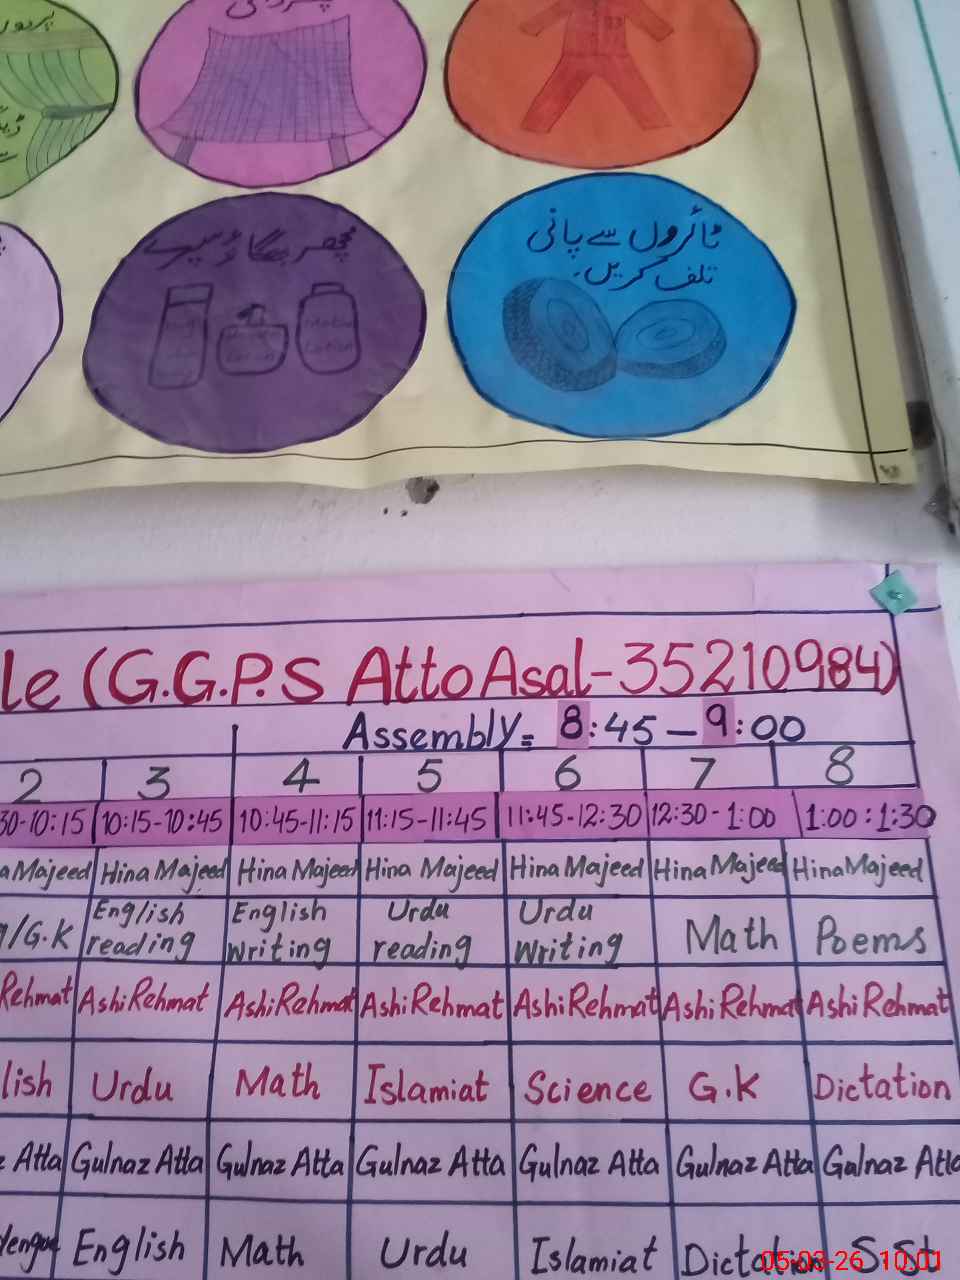 مچھر بھگاؤ سپرے
ٹائروں سے پانی
تلف کریں۔
le (G.G.P.S Atto Asal-35210984)
Assembly= 8:45 - 9:00
2 3 4 5 6 7 8
30-10:15 10:15-10:45 10:45-11:15 11:15-11:45 11:45-12:30 12:30-1:00 1:00:1:30
a Majeed Hina Majeed Hina Majeed Hina Majeed Hina Majeed Hina Majeed Hina Majeed
/G.K English reading English Writing Urdu reading Urdu Writing Math Poems
Rehmat Ashi Rehmat Ashi Rehmat Ashi Rehmat Ashi Rehmat Ashi Rehmat Ashi Rehmat
lish Urdu Math Islamiat Science G.K Dictation
z Atta Gulnaz Atta Gulnaz Atta Gulnaz Atta Gulnaz Atta Gulnaz Atta Gulnaz Atta
English Math Urdu Islamiat Dictation S.St
05-03-26 10:01